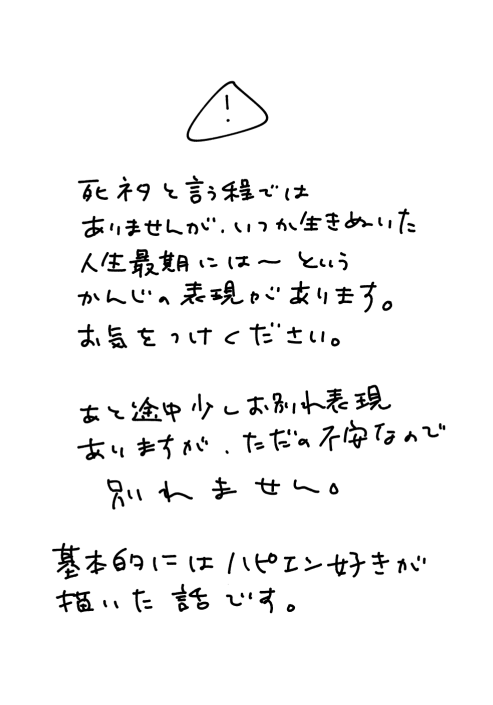 !
死ネタと言う程では
ありませんが、いつか生きぬいた
人生最期には〜という
かんじの表現があります。
お気をつけください。
あと途中少しお別れ表現
ありますが、ただの不安なので
別れません。
基本的にはハピエン好きが
描いた話です。